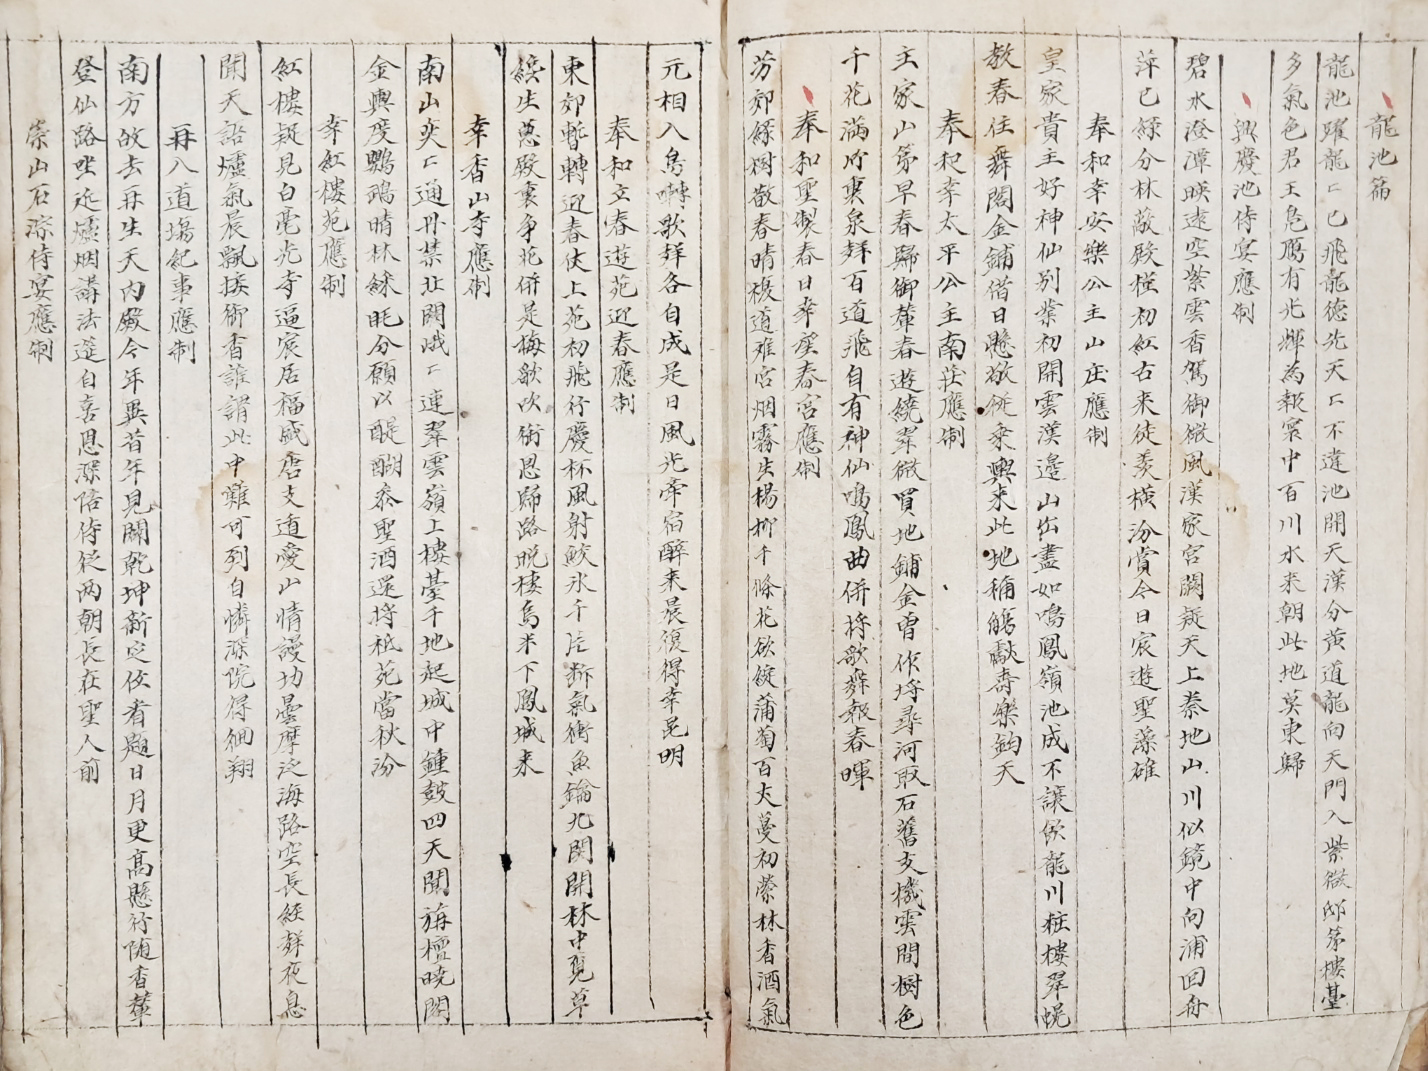 龍池篇
龍池躍龍〻已飛龍德先天〻不違池開天漢分黃道龍向天門入紫微邸第樓臺
多氣色君王鳧鴈有光輝為報寰中百川水来朝此地莫東歸
興慶池侍宴應制
碧水澄潭暎遠空紫雲香駕御微風漢家宮闕疑天上秦地山川似鏡中向浦回舟
萍已緑分林蔽殿槿初紅古来徒羡橫汾賞今日宸遊聖藻雄
奉和幸安樂公主山庄應制
皇家貴主好神仙别業初開雲漢邉山出盡如鳴鳳嶺池成不讓飲龍川粧樓翠幌
教春住舞閣金鋪借日懸敬従乘輿来此地稱觴獻壽樂鈞天
奉和幸太平公主南莊應制
主家山第早春歸御輦春遊繞翠微買地鋪金曾作埒尋河取石舊支機雲間樹色
千花滿竹裏泉聲百道飛自有神仙鳴鳳曲併將歌舞報春暉
奉和聖製春日幸望春宮應制
芳郊緑樹散春晴複道離宮烟霧生楊柳千條花欲綻蒲萄百丈蔓初縈林香酒氣
元相入鳥囀歌聲各自成是日風光牽宿醉来晨復得幸昆明
奉和立春遊苑迎春應制
東郊暫轉迎春仗上苑初飛行慶杯風射蛟氷千片斷氣衝魚鑰九関開林中覓草
纔生蕙殿裏争花併是梅歌吹銜恩歸路晚棲烏半下鳳城来
幸香山寺應制
南山奕〻通丹禁北闕峨〻連翠雲嶺上樓臺千地起城中鐘鼓四天聞旃檀曉閣
金輿度鸚鵡晴林綵眊分願以醍醐叅聖酒還將祇苑當秋汾
幸紅樓苑應制
紅樓疑見白毫光寺逼宸居福盛唐支遁愛山情謾切曇摩泛海路空長経聲夜息
聞天語爐氣晨飄接御香誰謂此中難可列自憐深院得徊翔
再入道塲紀事應制
南方故去再生天内殿今年異昔年見闢乾坤新定位看題日月更高懸行随香輦
登仙路坐近爐烟講法筵自喜恩深陪侍從两朝長在聖人前
崇山石淙侍宴應制